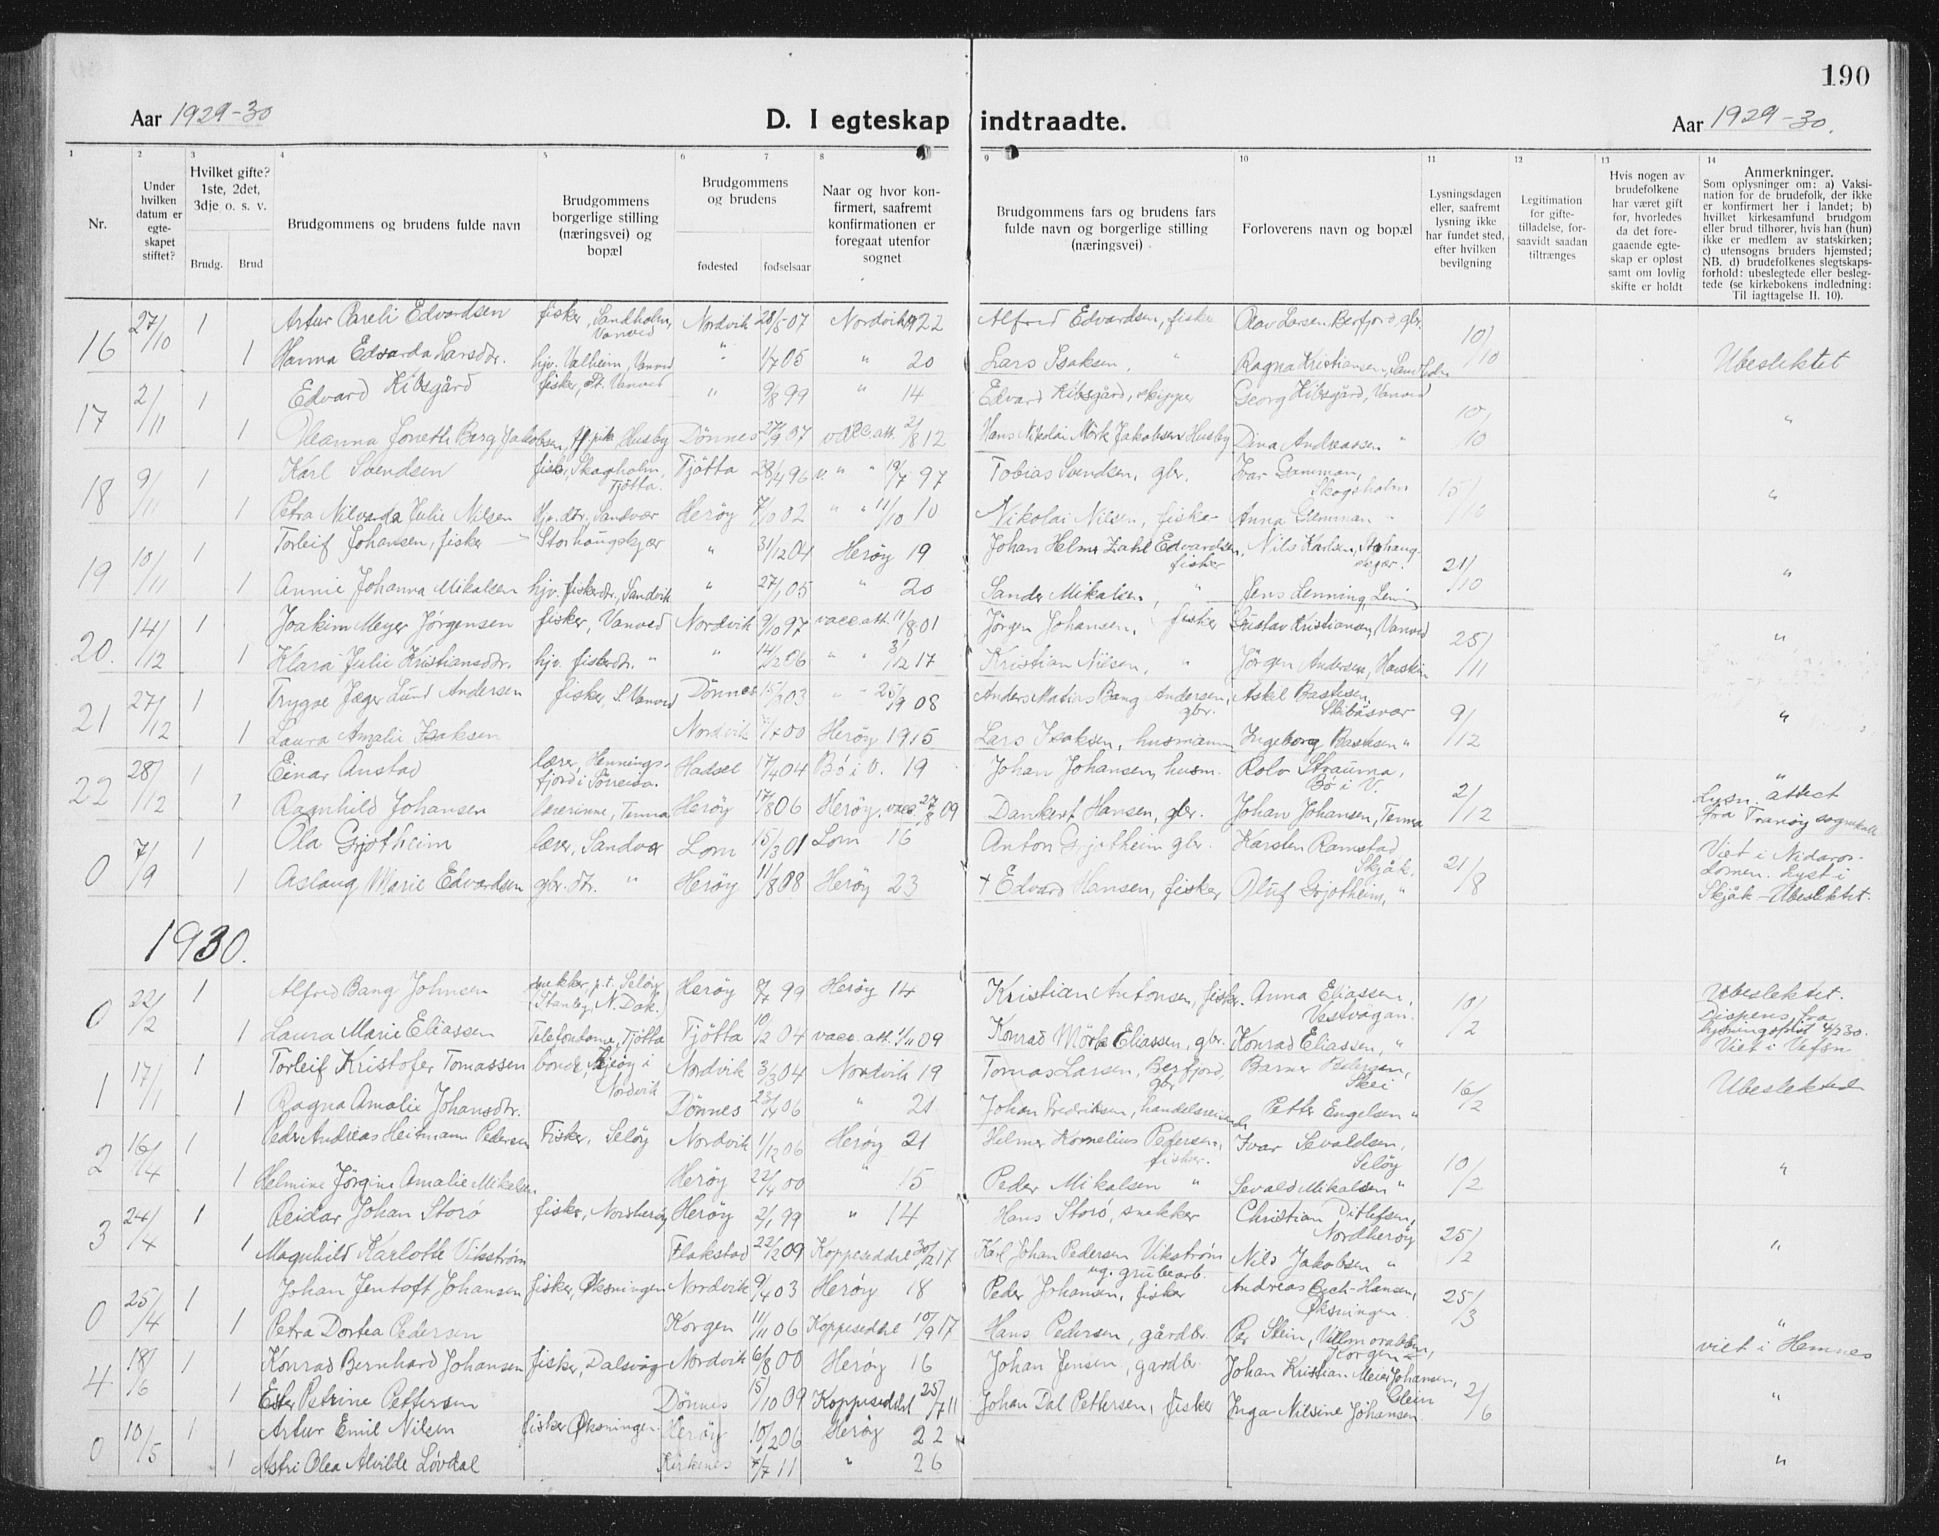 190
Aar 1929-30
D. I egteskap indtraadte.
Aar 1929-30.
1 2 3 4 5 6 7 8 9 10 11 12 13 14
Nr.
Under hvilken datum er egteskapet stiftet?
Hvilket gifte? 1ste, 2det, 3dje o. s. v.
Brudg. Brud
Brudgommens og brudens fulde navn
Brudgommens borgerlige stilling (næringsvei) og bopæl
Brudgommens og brudens
fødested fødselsaar
Naar og hvor konfirmert, saafremt konfirmationen er foregaat utenfor sognet
Brudgommens fars og brudens fars fulde navn og borgerlige stilling (næringsvei)
Forloverens navn og bopæl
Lysningsdagen eller, saafremt lysning ikke har fundet sted, efter hvilken bevilgning
Legitimation for giftetilladelse, forsaavidt saadan tiltrænges
Hvis nogen av brudefolkene har været gift før, hvorledes da det foregaaende egteskap er opløst samt om lovlig skifte er holdt
Anmerkninger.
Som oplysninger om: a) Vaksination for de brudefolk, der ikke er konfirmert her i landet; b) hvilket kirkesamfund brudgom eller brud tilhører, hvis han (hun) ikke er medlem av statskirken; c) utensogns bruders hjemsted; NB. d) brudefolkenes slegtskapsforhold: ubeslegtede eller beslegtede (se kirkebokens indledning: Til iagttagelse II. 10).
16 27/10 1 Artur Pareli Edvardsen fisker, Sandholm, Vanved Nordvik 28/5 07 Nordvik 1922 Alfred Edvardsen, fisker Olav Larsen Berfjord, gbr. 10/10 Ubeslektet
1 Hanna Edvarda Larsdtr. hjv. Valheim, Vanved " 1/7 05 " 20 Lars Isaksen, " Ragna Kristiansen, Sandholm
17 2/11 1 Edvard Kibsgård fisker, St. Vanved " 9/8 99 " 14 Edvard Kibsgård, skipper Georg Kibsgård, Vanved 10/10 "
1 Oleanna Jonette Berg Jakobsen, Husby Dønnes 27/9 07 vacc att. 2/8 12 Hans Nikolai Mörk Jakobsen Husby Dina Andreassen "
18 9/11 1 Karl Svendsen fisk., Skogholm, Tjötta Tjøtta 28/4 96 v. " " 19/7 97 Tobias Svendsen, gbr. Ivar Glemman, Skogsholm 15/10 "
1 Petra Nilvarda Julie Nilsen Sandvær Herøy 7/10 02 " " 11/10 10 Nikolai Nilsen, fisker Anna Glemman "
19 10/11 1 Torleif Johansen, fisker Storhaugskjær " 31/12 04 Herøy 19 Johan Helmer Zahl Edvardsen, fisker Nils Karlsen, Storhaugskjær. 21/10 "
1 Annie Johanna Mikalsen hjv. fiskerdtr., Sandvik " 27/1 05 " 20 Sander Mikalsen, " Jens Lenning, Lening
20. 14/12 1 Joakim Meyer Jørgensen fisker, Vanved Nordvik 9/10 97 vacc. att. 11/8 01 Jørgen Johansen, fisker Gustav Kristiansen, Vanved 25/11 "
1 Klara Julie Kristiansdtr. hjv. fiskerdtr. " " 14/2 06 " " 3/12 17 Kristian Nilsen, " Jørgen Andersen,
21 27/12 1 Trygve Jæger Lund Andersen fisker, S. Vanved Dønnes 03 " " 25/9 08 Anders Matias Bang Andersen, gbr. Askel Bastesen, Skibåsvær 9/12 "
1 Laura Amalie Isaksen Nordvik 7/7 00 Herøy 1915 Lars Isaksen, husmann Ingeborg Bastesen "
22 28/12 1 Einar Anstad lærer, Henningsfjord i Tönneisa. Hadsel 17/4 04 Bø i V. 19 Johan Johansen, husm. Rolv Strauma, Bø i V. 2/12 "
1 Ragnhild Johansen lærerinne, Tenna Herøy 17/8 06 Herøy, vacc. 27/8 09 Dankert Hansen, gbr. Johan Johansen, Tenna Lysn. attest fra Tranøy sognekall
0 7/9 1 Ola Grjotheim lærer, Sandvær Lom 15/3 01 Lom 16 Anton Grjotheim gbr. Karsten Ramstad Skjåk. 21/8 Viet i Nidarosdomen. Lyst i
1 Aslaug Marie Edvardsen gbr. dtr. " Herøy 11/8 08 Herøy 23 + Edvard Hansen, fisker Oluf Grjotheim, " Skjåk - Ubeslektet.
1930.
0 22/2 1 Alfred Bang Johnsen snekker, p.t. Seløy (Stanley, N. Dak. Herøy 8/7 99 Herøy 14 Kristian Antonsen, fisker. Anna Eliassen, Vestvågan. 10/2 Ubeslektet. Dispens. fra
1 Laura Marie Eliassen Telefondame, Tjötta Tjötta 10/12 04 vacc. att. 1/11 09 Konrad Mörk Eliassen, gbr. Konrad Eliassen, " lysningsplikt 4/2 30. Viet i Vefsn
1 17/1 1 Torleif Kristofer Tomassen bonde, i Nordvik Nordvik 3/3 04 Nordvik 19 Tomas Larsen, Berfjord, gbr. Barner Pedersen, Skei 16/2 Ubeslektede
1 Ragna Amalie Johansdtr. Dönnes 23/4 06 " 21 Johan Fredriksen, handelsreisende Petter Engelsen "
2 16/4 1 Peder Andreas Heitmann Pedersen Fisker, Seløy Nordvik 1/12 06 Herøy 21 Helmer Kornelius Pedersen, fisker. Ivar Sevaldsen, Seløy 10/2 "
1 Helmine Jörgine Amalie Mikalsen Herøy 22/4 00 " 15 Peder Mikalsen " Sevald Mikalsen "
3 24/4 1 Reidar Johan Storö fisker, Nordherøy Herøy 2/1 99 " 14 Hans Storö, snekker Christian Ditlefsen, Nordherøy 25/2 "
1 Magnhild Karlotte Vikström Flakstad 22/2 09 Koppeseddel 30/12 17 Karl Johan Pedersen Vikström ug. grubearb. Nils Jakobsen "
0 25/4 1 Johan Jentoft Johansen fisker, Øksningen Nordvik 9/4 03 Herøy 18 Peder Johansen, fisker Andreas Bech-Hansen, Øksningen 25/3 "
1 Petra Dortea Pedersen Korgen 11/11 06 Koppeseddel 10/9 17 Hans Pedersen, gårdbr. Per Stein, Villmorabben, Korgen viet i Hemnes
4 18/6 1 Konrad Bernhard Johansen fisker, Dalsvåg Nordvik 6/8 00 Herøy 16 Johan Jensen, gårdbr. Johan Kristian Meier Johansen, Glein 2/6 "
1 Ester Petrine Pettersen Dönnes 15/10 09 Koppeseddel 25/7 11 Johan Dal Pettersen, fisker Inga Nilsine Johansen
0 10/5 1 Artur Emil Nilsen fisker Øksningen Herøy 10/2 06 Herøy 22 "
1 Astri Olea Alvilde Løvdal Kirkenes 7/7 11 " 26